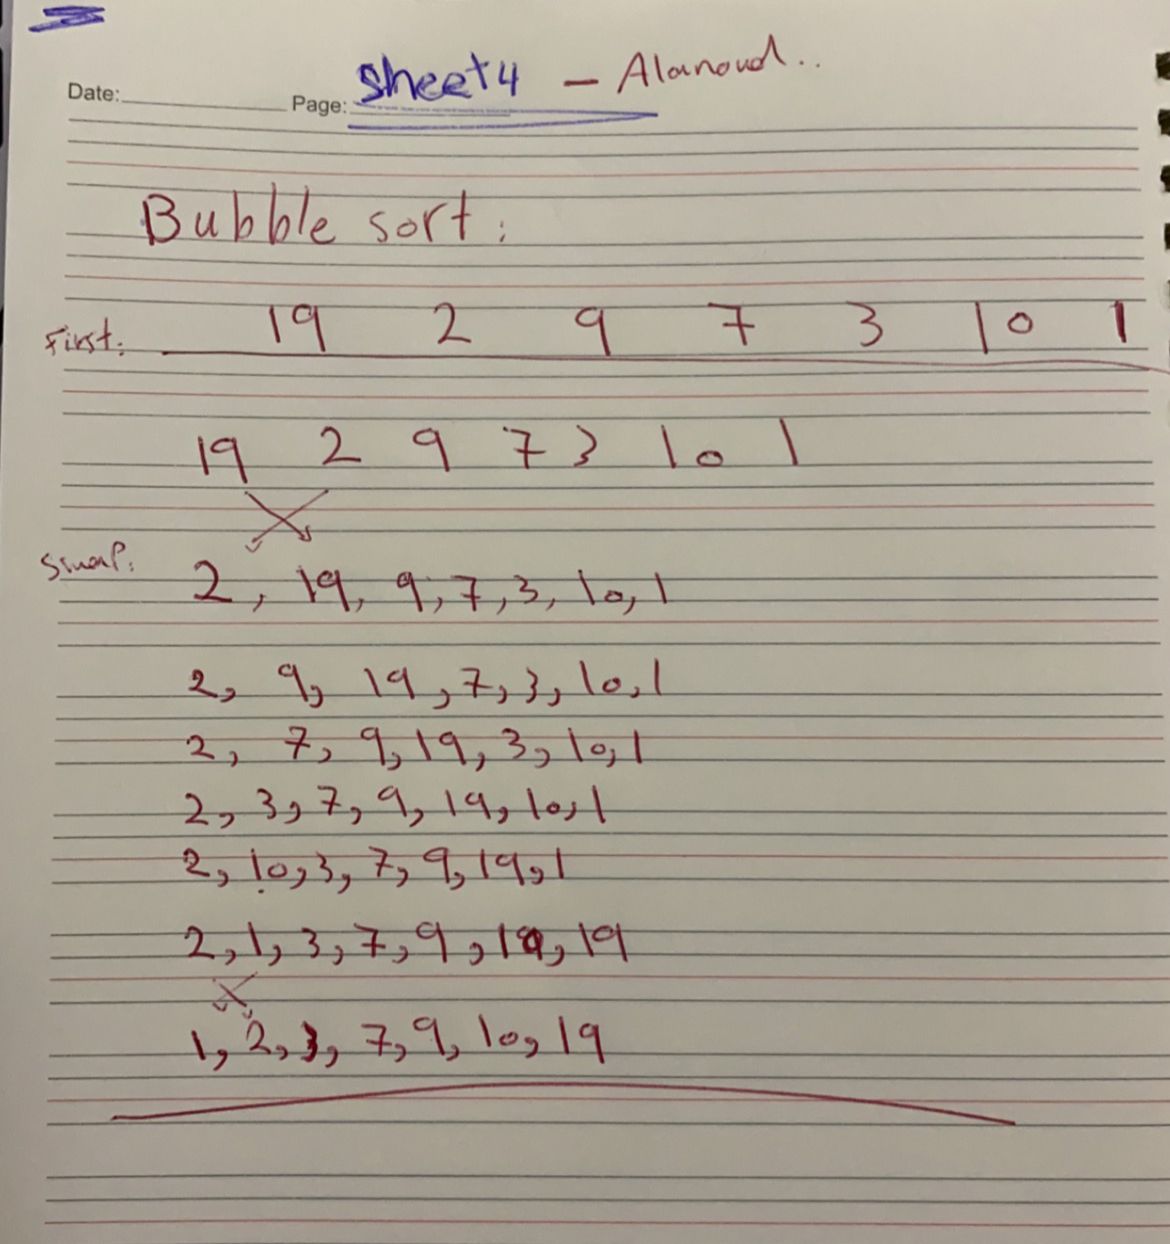 Date: Page: Sheet4 - Alanoud..
Bubble sort:
First: 19 2 9 7 3 10 1
19 2 9 7 3 10 1
Swap: 2, 19, 9, 7, 3, 10, 1
2, 9, 19, 7, 3, 10, 1
2, 7, 9, 19, 3, 10, 1
2, 3, 7, 9, 19, 10, 1
2, 10, 3, 7, 9, 19, 1
2, 1, 3, 7, 9, 10, 19
1, 2, 3, 7, 9, 10, 19